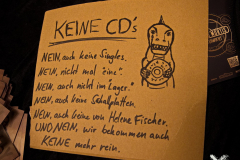 KEINE CD's
NEIN, auch keine Singles.
NEIN, nicht mal "eine".
NEIN, auch nicht im Lager.
NEIN, auch keine Schallplatten.
NEIN, auch keine von Helene Fischer.
UND NEIN, wir bekommen auch
KEINE mehr rein.